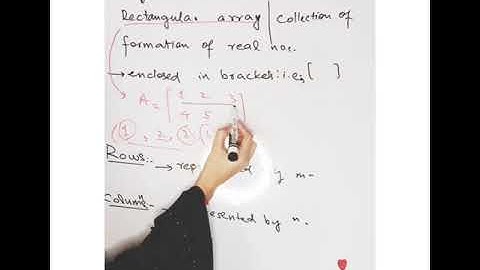 Rectangular array | collection of
formation of real no.
→ enclosed in bracket i.e, [ ]
A = [ 1 2 3
4 5
1, 2, 3
Rows:-
→ rep y m-
Column:-
resented by n.